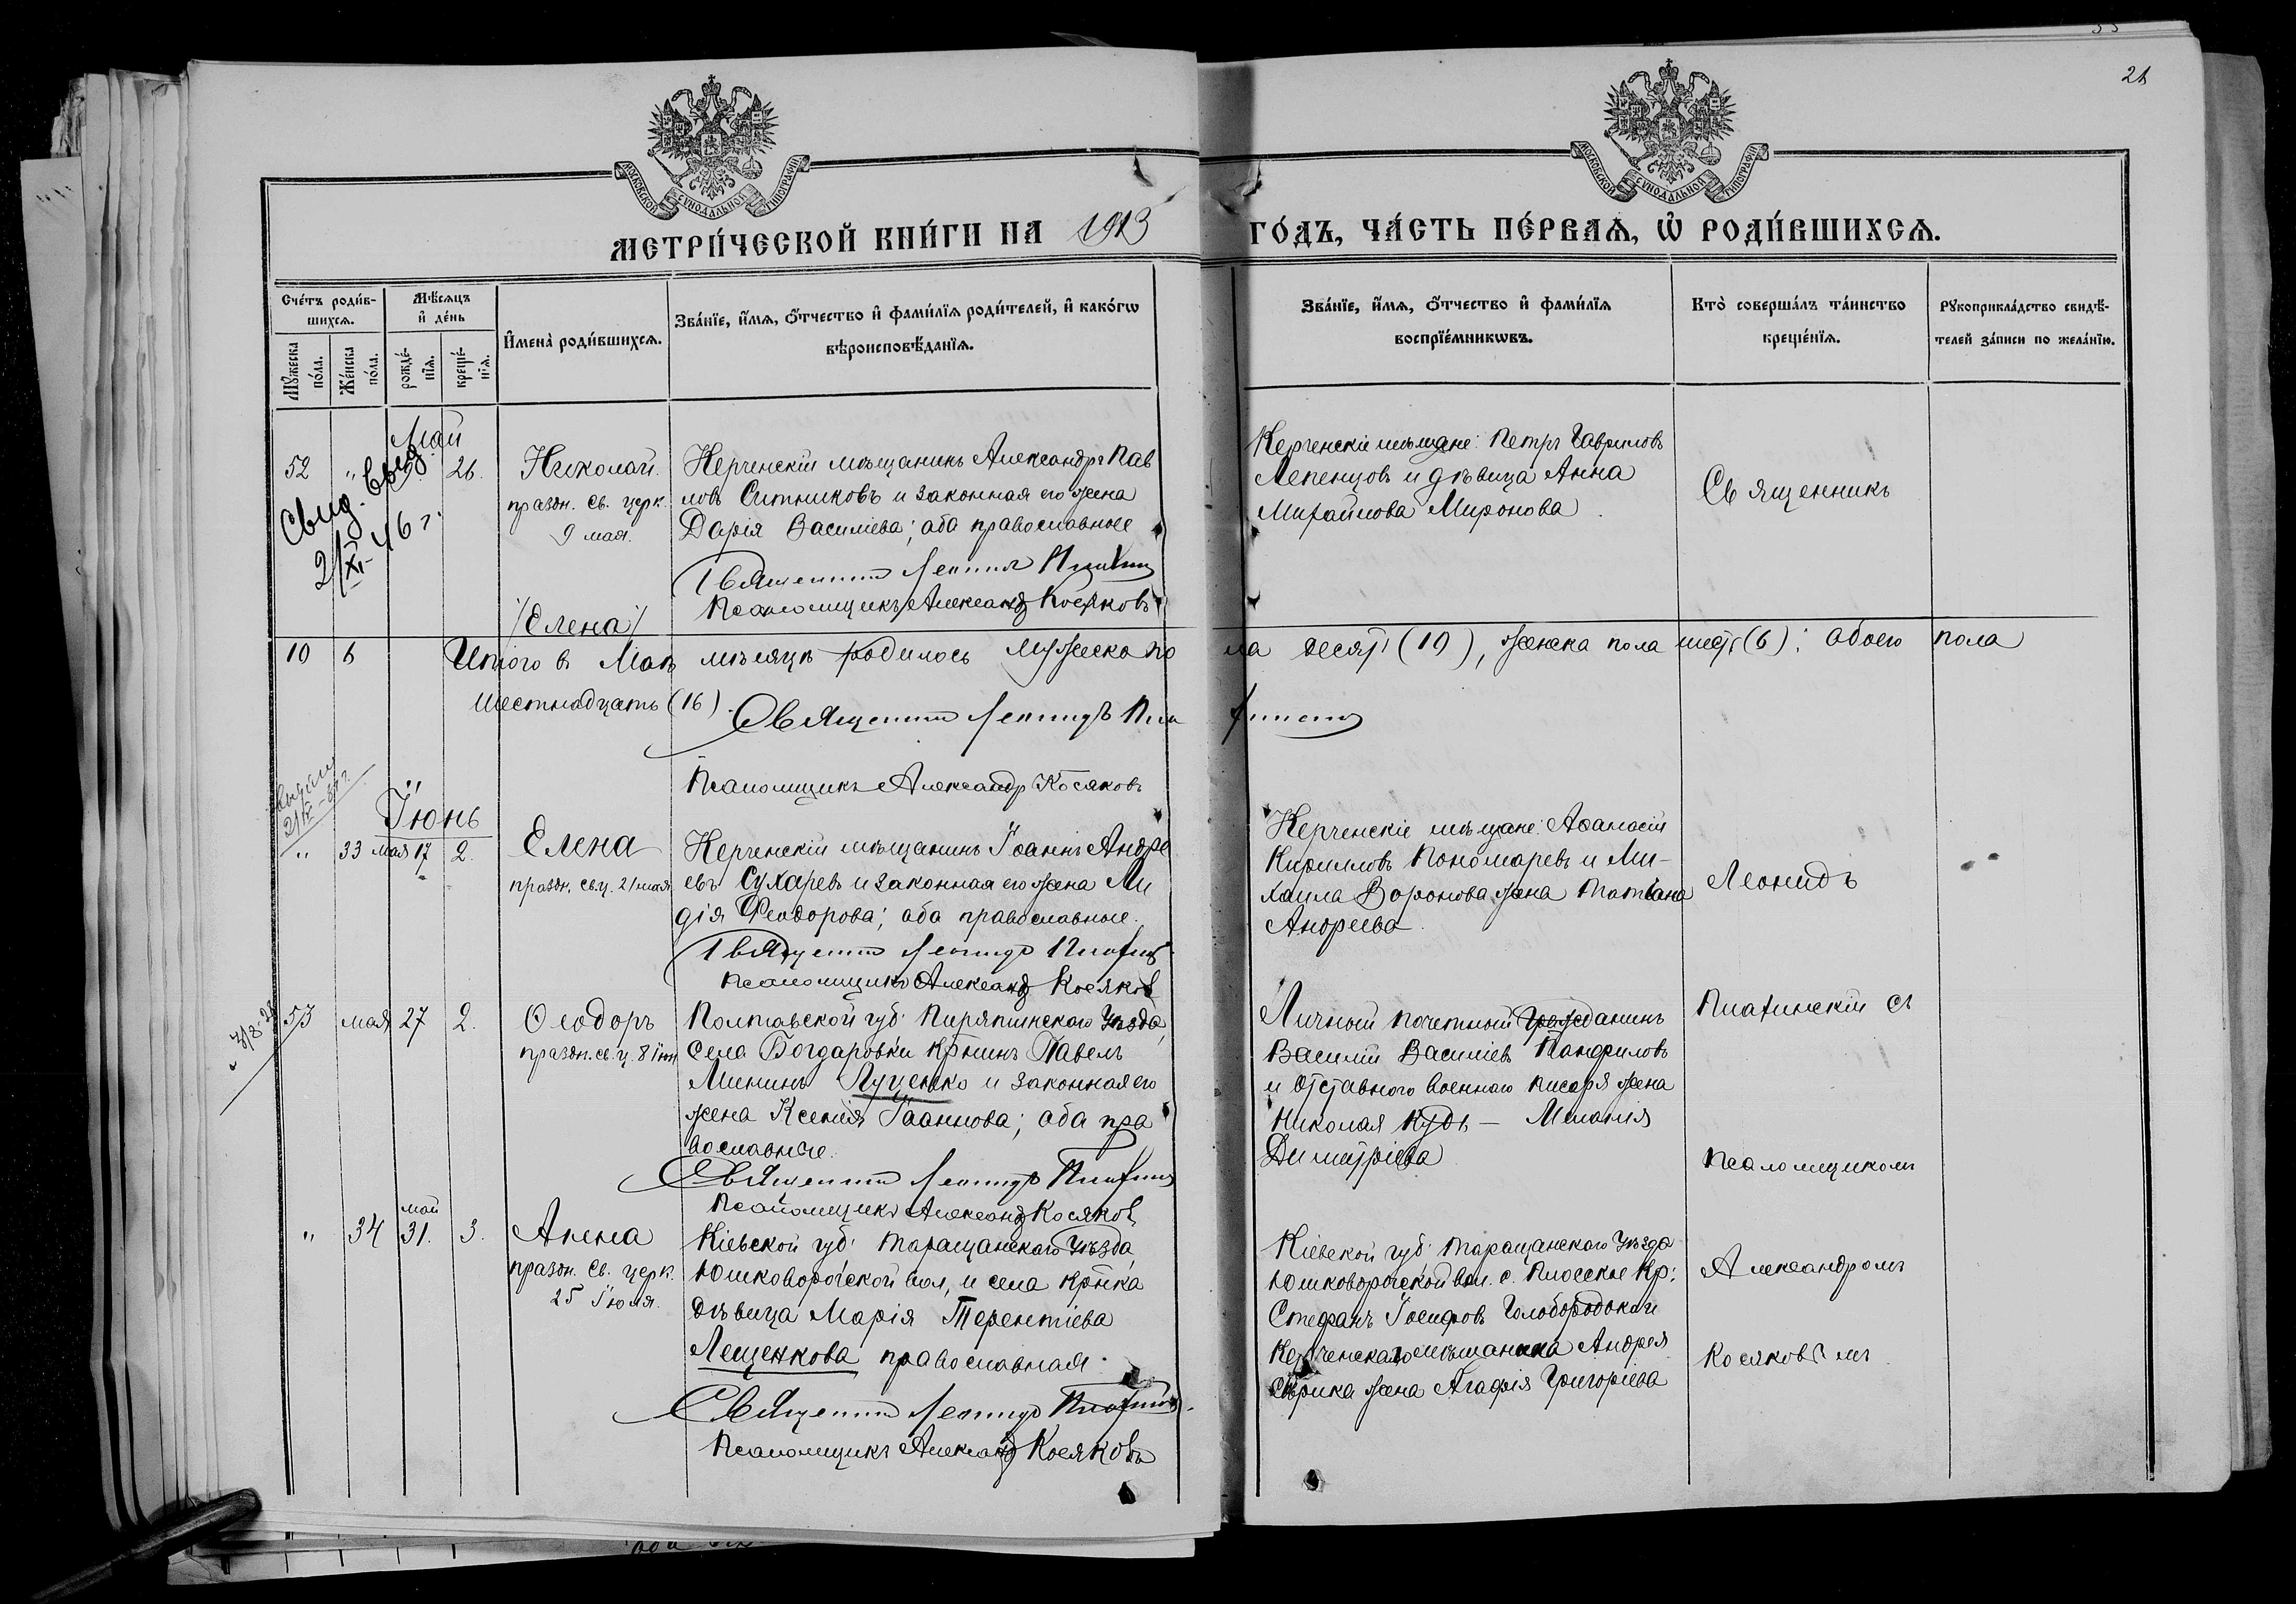 21
МОСКОВСКОЙ СѴНОДАЛЬНОЙ ТИПОГРАФІИ
МОСКОВСКОЙ СѴНОДАЛЬНОЙ ТИПОГРАФІИ
МЕТРИ́ЧЕСКОЙ КНИ́ГИ НА 1913 ГО́ДЪ, ЧА́СТЬ ПЕ́РВАѦ, Ѡ РОДИ́ВШИХСѦ.
Сче́тъ роди́в-
шихсѧ.
Мѣ́сѧцъ
и҆ де́нь
Мꙋ́жеска
по́ла.
Же́нска
по́ла.
рожде́-
нїѧ.
креще́-
нїѧ.
И҆мена̀ роди́вшихсѧ.
Зва́нїе, и҆́мѧ, ѻ҆́тчество и҆ фами́лїѧ роди́телей, и҆ како́гѡ
вѣроисповѣ́данїѧ.
Зва́нїе, и҆́мѧ, ѻ҆́тчество и҆ фами́лїѧ
воспрїе́мникѡвъ.
Кто̀ соверша́лъ та́инство
креще́нїѧ.
Рꙋкоприкла́дство свидѣ́-
телей за́писи по жела́нїю.
Май
52 " 26.
Свид. выд.
21/XI-46 г.
Николай.
праздн. св. церк.
9 мая.
Керченскій мѣщанинъ Александръ Пав
ловъ Ситниковъ и законная его жена
Дарія Василіева; оба православные
Псаломщикъ Александр Косяковъ
Керченскіе мѣщане: Петръ Гавриловъ
Лепенцов и дѣвица Анна
Михайлова Миронова.
Священникъ
/Елена/
10 6 Итого в Маѣ мѣсяцѣ родилось мужеска по ла десять (10), женска пола шесть (6); обоего пола
шестнадцать (16).
Священник Леонидъ
Псаломщикъ Александр Косяковъ
Іюнь
" 33 мая 17 2.
Елена
праздн. св. ц. 21 мая
Керченскій мѣщанинъ Іоаннъ Андре
евъ Сухаревъ и законная его жена Ли
дія Феодорова; оба православные.
Священник Леонидъ
Псаломщикъ Александр Косяков
Керченскіе мѣщане: Аѳанасій
Кирилловъ Пономаревъ и Ми-
хаила Воронова жена Татіана
Андреева.
Леонидъ
53 мая 27 2.
Ѳеодоръ
праздн. св. ц. 8 іюн
Полтавской губ. Пирятинскаго Уѣзда,
села Богдаровки кр͠нинъ Павелъ
Мининъ Луценко и законная его
жена Ксенія Іоаннова; оба пра
вославные.
Священник Леонидъ
Псаломщикъ Александр Косяков
Личный почетный Гражданинъ
Василій Василіевъ Панфиловъ
и отставного военнаго писаря жена
Николая Кудь — Меланія
Димитріева
Пиатинскій съ
Псаломщикомъ
" 34 май 31. 3.
Анна
праздн. св. церк.
25 Іюля.
Кіевской губ. Таращанскаго Уѣзда,
Юшковорогской вол, и села кр͠нка
дѣвица Марія Терентіева
Лещенкова православная.
Священник Леонидъ
Псаломщикъ Александр Косяковъ
Кіевской губ. Таращанскаго Уѣзда
Юшковорогской вол. с. Плоское Кр:
Стефанъ Іосифовъ Голобородокъ и
Керченскаго мѣщанина Андрея
жена Агафія Григоріева
Александромъ
Косяковымъ